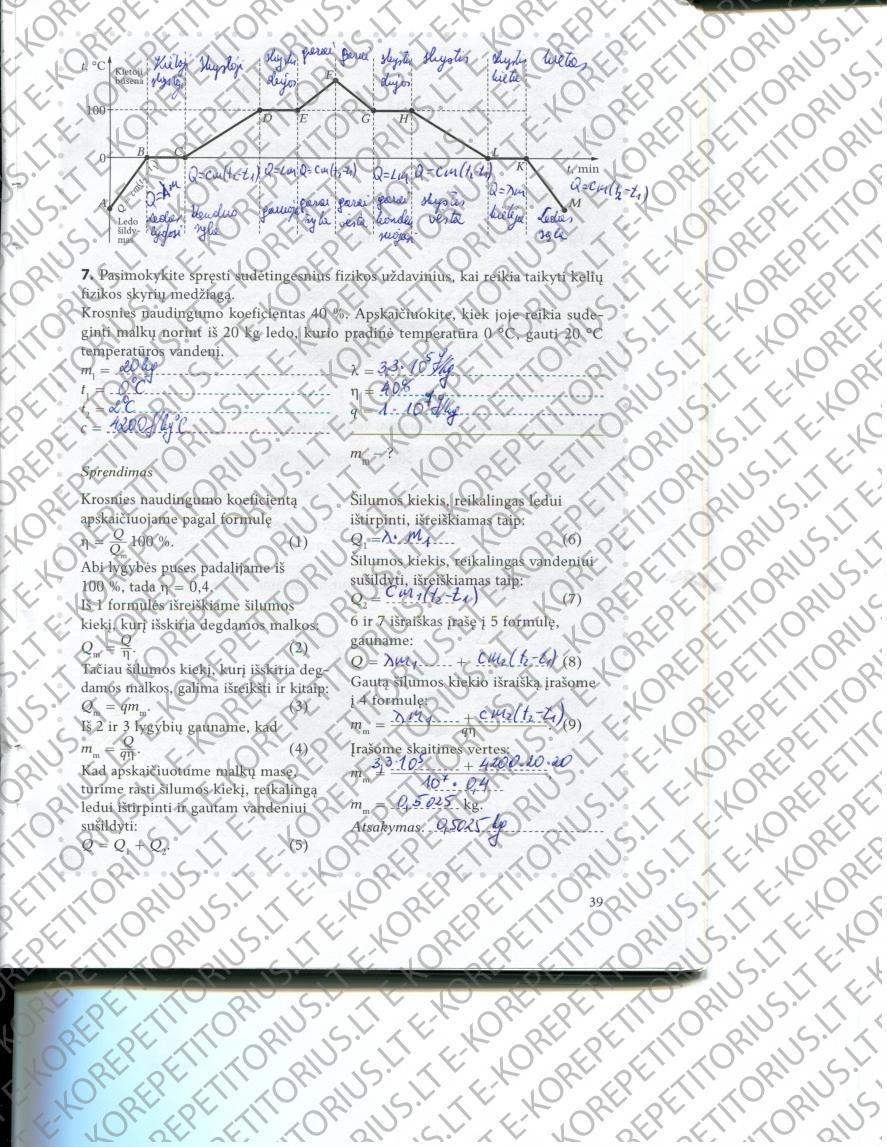 t, °C
Kietoji
būsena
Kietoji
skystoji
skystoji
garai
garai
skystis
kieta
100
D
E
F
G
H
0
B
C
L
K
t, min
A
M
Q=cm(t₂-t₁)
Q=Lm
Q=cm(t₂-t₁)
Q=Lm
Q=cm(t₂-t₁)
Q=λm
Q=cm(t₂-t₁)
Ledo
šildy-
mas
Ledas
lydosi
Vanduo
šyla
garuoja
garai
šyla
garai
vėsta
garai
skystis
vėsta
Ledas
7. Pasimokykite spręsti sudėtingesnius fizikos uždavinius, kai reikia taikyti kelių
fizikos skyrių medžiagą.
Krosnies naudingumo koeficientas 40 %. Apskaičiuokite, kiek joje reikia sude-
ginti malkų norint iš 20 kg ledo, kurio pradinė temperatūra 0 °C, gauti 20 °C
temperatūros vandenį.
m₁ = 20 kg
t₁ = 0°C
t₂ = 2°C
c = 4200 J/kg°C
λ = 3,3·10⁵ J/kg
η = 40%
q = 1·10⁷ J/kg
mₘ – ?
Sprendimas
Krosnies naudingumo koeficientą
apskaičiuojame pagal formulę
η = Q/Qₘ 100 %. (1)
Abi lygybės puses padalijame iš
100 %, tada η = 0,4.
Iš 1 formulės išreiškiame šilumos
kiekį, kurį išskiria degdamos malkos:
Qₘ = Q/η. (2)
Tačiau šilumos kiekį, kurį išskiria deg-
damos malkos, galima išreikšti ir kitaip:
Qₘ = qmₘ. (3)
Iš 2 ir 3 lygybių gauname, kad
mₘ = Q/qη. (4)
Kad apskaičiuotume malkų masę,
turime rasti šilumos kiekį, reikalingą
ledui ištirpinti ir gautam vandeniui
sušildyti:
Q = Q₁ + Q₂. (5)
Šilumos kiekis, reikalingas ledui
ištirpinti, išreiškiamas taip:
Q₁ = λ·m₁ (6)
Šilumos kiekis, reikalingas vandeniui
sušildyti, išreiškiamas taip:
Q₂ = cm₁(t₂-t₁) (7)
6 ir 7 išraiškas įrašę į 5 formulę,
gauname:
Q = λm₁ + cm₂(t₂-t₁) (8)
Gautą šilumos kiekio išraišką įrašome
į 4 formulę:
mₘ = λm₁ + cm₂(t₂-t₁)/qη. (9)
Įrašome skaitines vertes:
mₘ = 3,3·10⁵ + 4200·20·20/10⁷·0,4,
mₘ = 0,5025 kg.
Atsakymas. 0,5025 kg
39
E-KOREPETITORIUS.LT